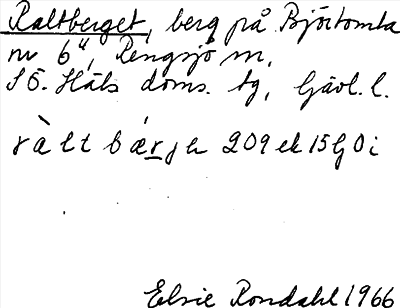 Raltberget, berg på Björtomta
nr 6", Rengsjö sn,
SÖ. Häls doms. tg, Gävl. l.
ràlt bǽrjh 209 ek 15G0i
Elsie Rondahl 1966